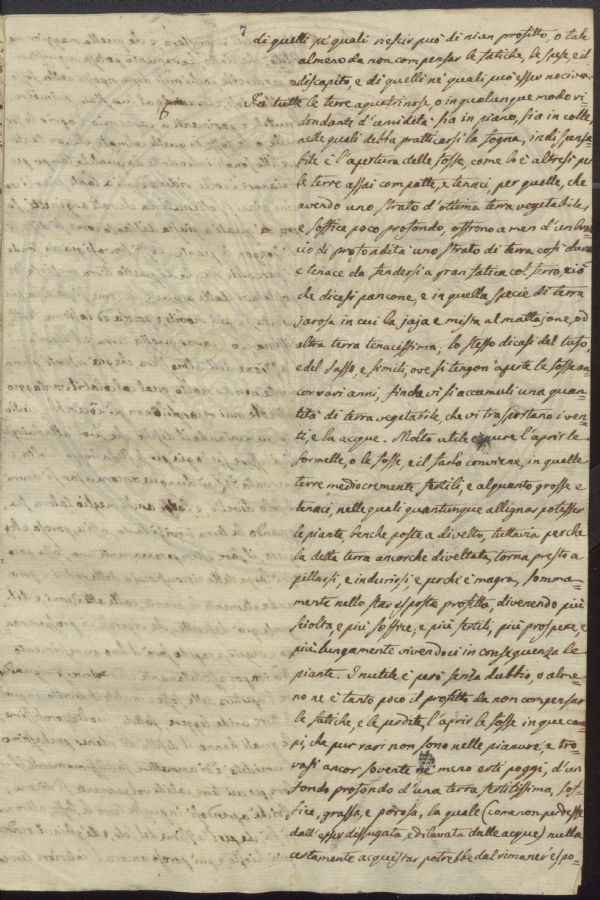 7
di quelli ne' quali riescir può di niun profitto, o tale
almeno da non compensar le fatiche, le spese, e il
discapito, e di quelli ne' quali può esser nocivo.
In tutte le terre aquitrinose, o in qualunque modo ri-
dondanti d'umidità sia in piano, sia in colle,
nelle quali debba pratticarsi la fogna, indispensa-
bile è l'apertura delle fosse, come lo è altresì per
le terre assai compatte, e tenaci, per quelle, che
avendo uno strato d'ottima terra vegetabile,
e soffice poco profondo, offrono a men d'un brac-
cio di profondità uno strato di terra così dura
e tenace da fendersi a gran fatica col ferro, ciò
che dicesi pancone, e in quella specie di terra
jarosa in cui la jaja è mista al mattajone, ed
altra terra tenacissima. Lo stesso dicasi del tufo,
e del sasso, e simili, ove si tengon' aperte le fosse an-
cor varj anni, finche vi si accumuli una quan-
tità di terra vegetabile, che vi trasportano i ven-
ti, e la acque. Molto utile è pure l'aprir le
formelle, o le fosse, e il farlo conviene, in quelle
terre mediocremente fertili, e alquanto grosse e
tenaci, nelle quali quantunque allignar potesser
le piante, benche poste a divelto, tuttavia perche
la detta terra ancorche divettata, torna presto a
pillarsi, e indurirsi, e perchè è magra, somma-
mente nello star esposta profitta, divenendo più
sciolta, e più soffice, e più fertili, più prospere, e
più lungamente vivendoci in conseguenza le
piante. Inutile è però senza dubbio, o alme-
no ne è tanto poco il profitto da non compensar
le fatiche, e le perdite l'aprir le fosse in que' cam-
pi, che pur rari non sono nelle pianure, e tro-
vasi ancor sovente ne' meno erti poggi, d'un
fondo profondo d'una terra fertilissima, sof-
fice, grassa, e porosa, la quale (come non perdesse
dall'esser dissugata, e dilavata dalle acque) nulla
certamente acquistar potrebbe dal rimaner' espo-